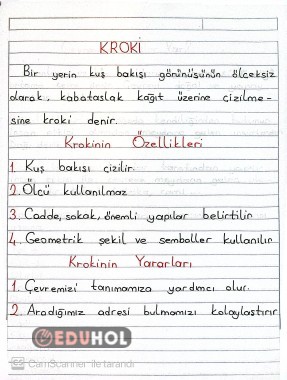 KROKİ
Bir yerin kuş bakışı görünüşünün ölçeksiz
olarak, kabataslak kağıt üzerine çizilme-
sine kroki denir.
Krokinin Özellikleri
1. Kuş bakışı çizilir.
2. Ölçü kullanılmaz
3. Cadde, sokak, önemli yapılar belirtilir
4. Geometrik şekil ve semboller kullanılır
Krokinin Yararları
1. Çevremizi tanımamıza yardımcı olur.
2. Aradığımız adresi bulmamızı kolaylaştırır
EDUHOL
CS CamScanner ile tarandı